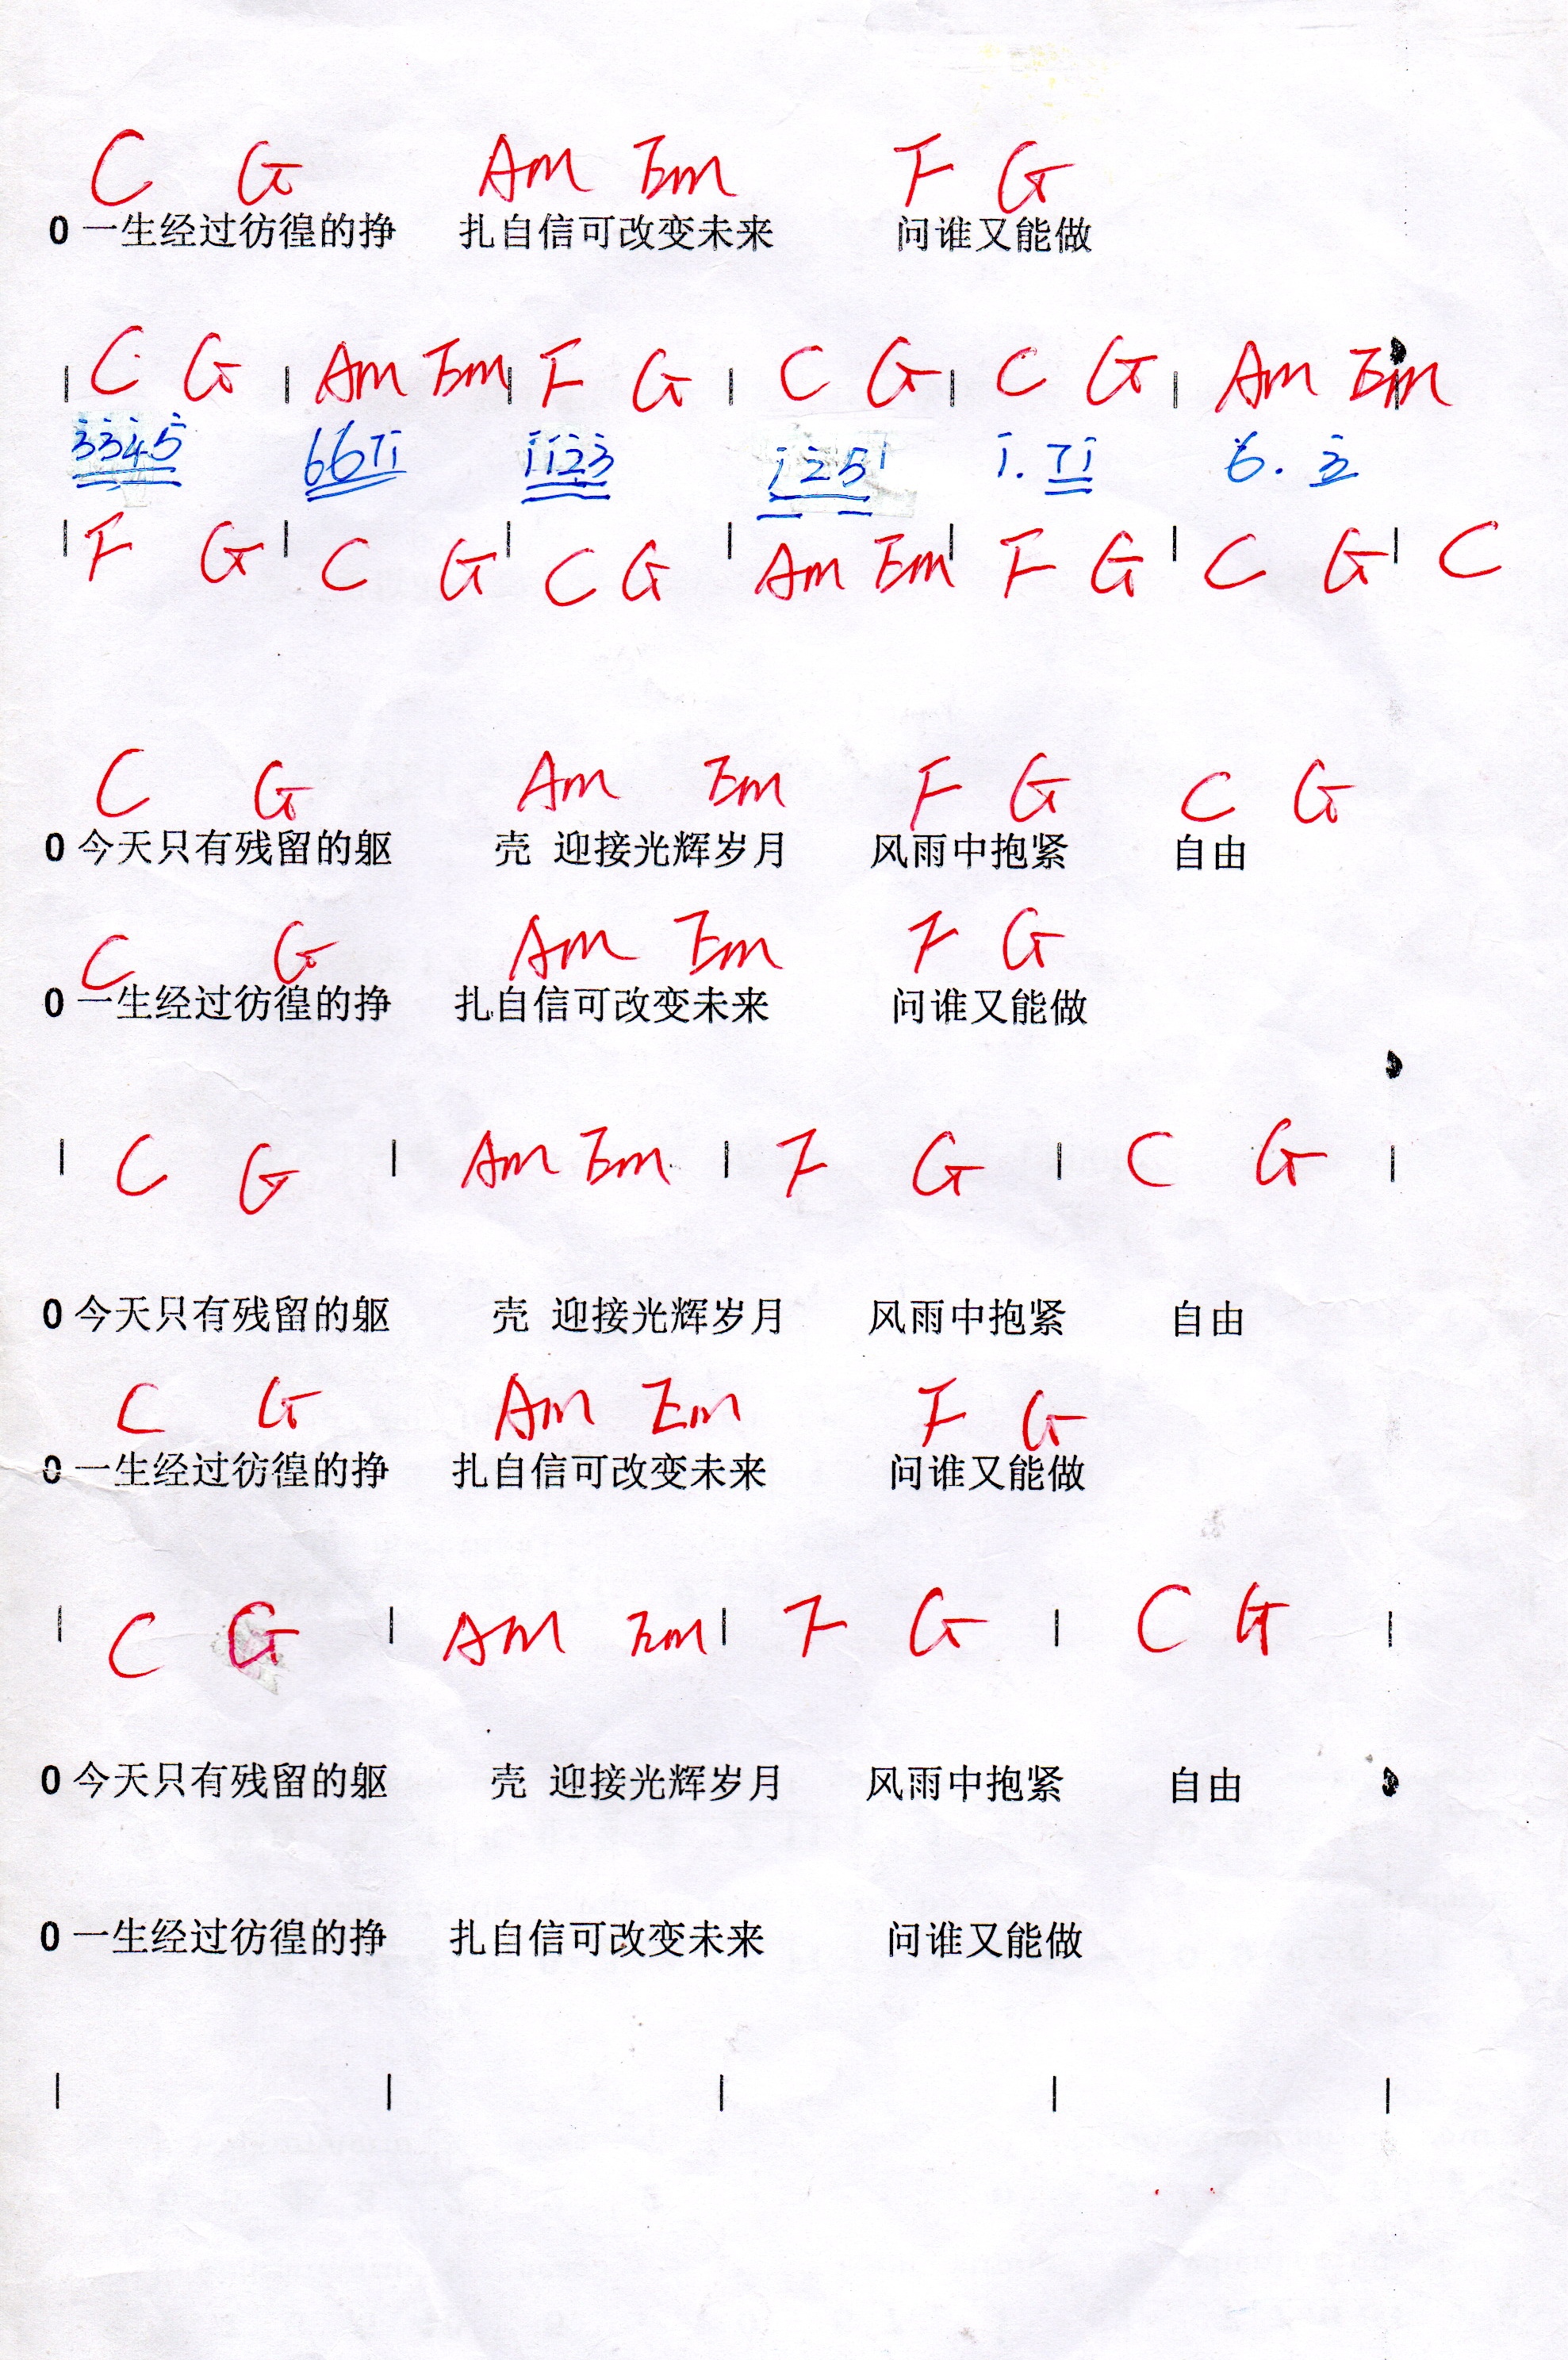 C G Am Em F G
0 一生经过彷徨的挣 扎自信可改变未来 问谁又能做
| C G | Am Em | F G | C G | C G | Am Em |
3345 6671 1123 125 1. 71 6. 3
| F G | C G | C G | Am Em | F G | C G | C
C G Am Em F G C G
0 今天只有残留的躯 壳 迎接光辉岁月 风雨中抱紧 自由
C G Am Em F G
0 一生经过彷徨的挣 扎自信可改变未来 问谁又能做
| C G | Am Em | F G | C G |
0 今天只有残留的躯 壳 迎接光辉岁月 风雨中抱紧 自由
C G Am Em F G
0 一生经过彷徨的挣 扎自信可改变未来 问谁又能做
| C G | Am Em | F G | C G |
0 今天只有残留的躯 壳 迎接光辉岁月 风雨中抱紧 自由
0 一生经过彷徨的挣 扎自信可改变未来 问谁又能做
| | | | |